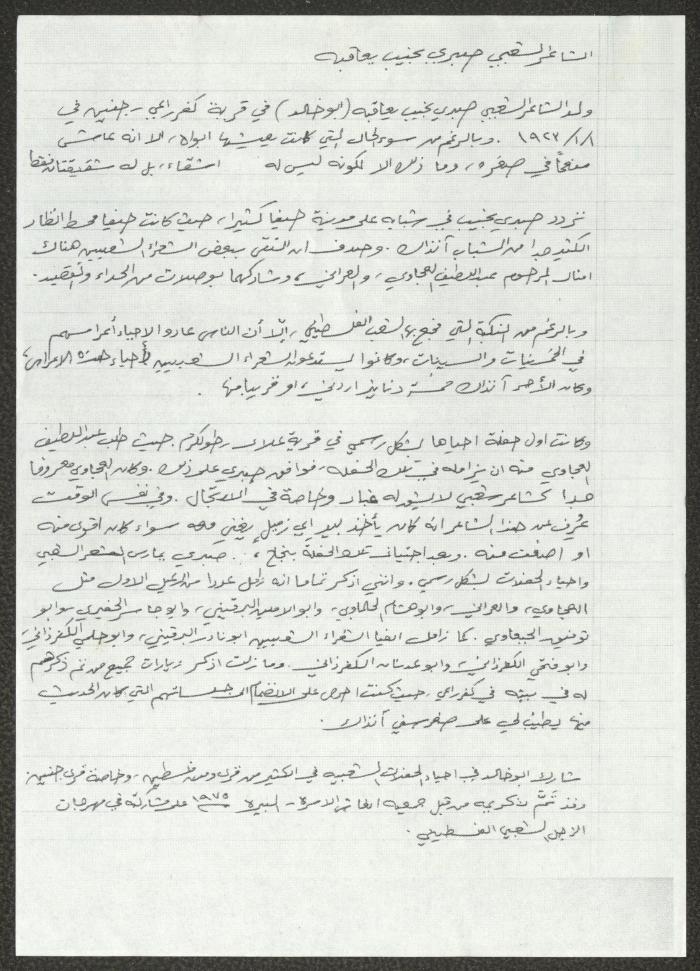 الشاعر الشعبي صبري نجيب يعاقبه
ولد الشاعر الشعبي صبري نجيب يعاقبه (ابو خالد) في قرية كفرراعي - جنين في
١/١/١٩٢٣ . وبالرغم من سوء الحال التي كانت يعيشها ابواه، الا انه عاش
في صغره، وما ذلك الا لكونه ليس له اشقاء، بل له شقيقتان فقط
تردد صبري نجيب في شبابه على مدينة حيفا كثيرا، حيث كانت حيفا محط انظار
الكثير جدا من الشباب آنذاك. وصدف ان التقى ببعض الشعراء الشعبيين هناك
امثال المرحوم عبد اللطيف العجاوي، والعراني، وشاركهما بوصلات من الحداء والقصيد.
وبالرغم من النكبة التي فجع بها الشعب الفلسطيني، إلّا أن الناس عادوا لاحياء أعراسهم
في الخمسينات والستينات، وكانوا يستدعون الشعراء الشعبيين لأحياء هذه الاعراس،
وكان الأجر آنذاك خمسة دنانير اردني، او قريبا منها.
وكانت اول حفلة احياها بشكل رسمي في قرية علار - طولكرم. حيث طلب عبد اللطيف
العجاوي منه ان يزامله في تلك الحفله، فوافق صبري على ذلك. وكان العجاوي معروفا
جدا كشاعر شعبي لا يشق له غبار وخاصة في الارتجال. وفي نفس الوقت
عُرف عن هذا الشاعر انه كان يأخذ بيد اي زميل يغني معه سواء كان اقوى منه
او اضعف منه. وبعد اجتياز تلك الحفلة بنجاح، . صبري يمارس الشعر الشعبي
واحياء الحفلات بشكل رسمي. وانني اذكر تماما انه زامل عددا من الرعيل الاول مثل
العجاوي، والعراني، وابو هشام الجلماوي، وابو الامين البرقيني، وابو جاسر الخفيري، وابو
توفيق الجبعاوي. كما زامل ايضا الشعراء الشعبيين ابو نادر البرقيني، وابو حلمي الكفرذاني،
وابو فتحي الكفرذاني، وابو عدنان الكفرذاني. وما زلت اذكر زيارات جميع من تم ذكرهم
له في بيته في كفرراعي، حيث كنت احرص على الانضمام الى جلساتهم التي كان الحديث
فيها يطيب لي على صغر سني آنذاك.
شارك ابو خالد في احياء الحفلات الشعبيه في الكثير من قرى ومدن فلسطين، وخاصة قرى جنين.
وقد تمَّ تكريمه من قبل جمعيه انعاش الاسرة - البيرة ١٩٧٥ على مشاركته في مهرجان
الزجل الشعبي الفلسطيني.